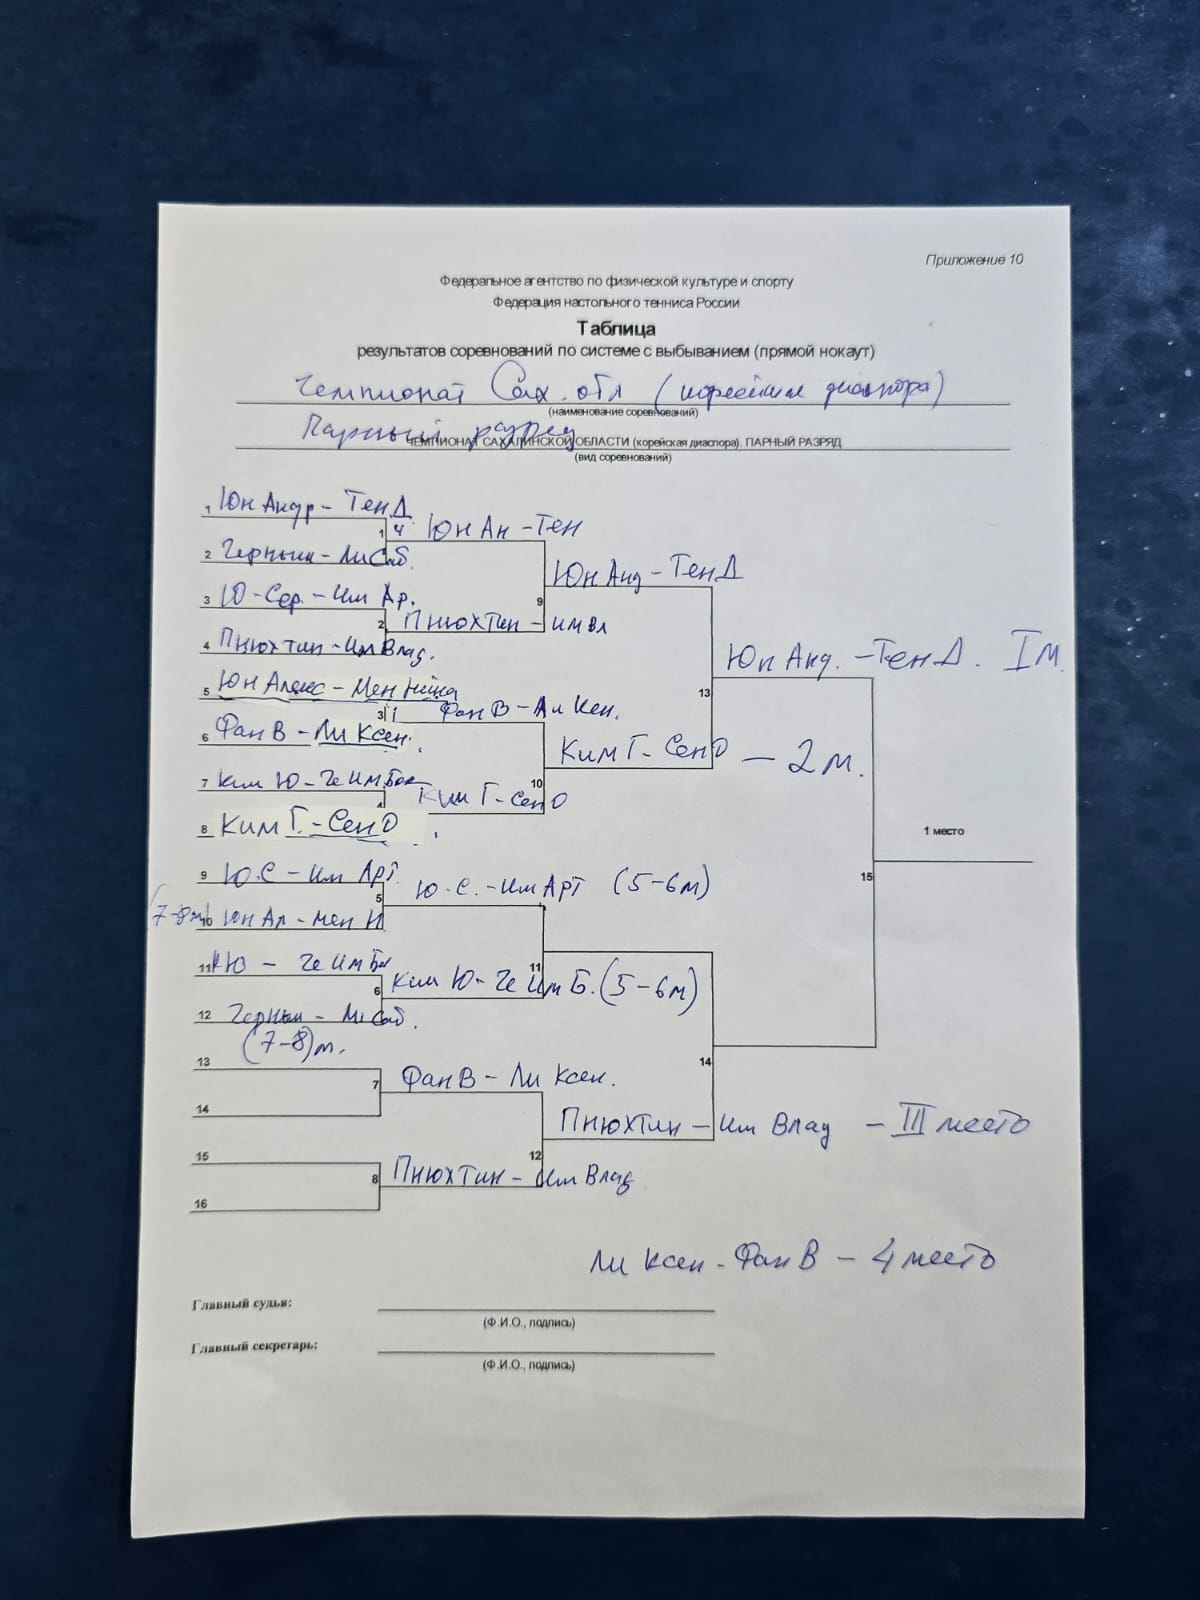 Приложение 10
Федеральное агентство по физической культуре и спорту
Федерация настольного тенниса России
Таблица
результатов соревнований по системе с выбыванием (прямой нокаут)
Чемпионат Сах. обл (корейская диаспора)
(наименование соревнований)
Парный разряд
ЧЕМПИОНАТ САХАЛИНСКОЙ ОБЛАСТИ (корейская диаспора). ПАРНЫЙ РАЗРЯД
(вид соревнований)
1 Юн Андр - Тен Д
1 Юн Ан - Тен
2 Черных - Ли Саб.
9 Юн Анд - Тен Д
3 Ю-Сер. - Им Ар.
2 Пнюхтин - им вл
4 Пнюхтин - Им Влад.
13 Юн Анд. - Тен Д. I м.
5 Юн Алекс - Мен Нина
3 Фан В - Ли Ксен.
6 Фан В - Ли Ксен.
10 Ким Г - Сен О - 2 м.
7 Ким Ю - Че Им Бок
4 Ким Г - Сен О
8 Ким Г. - Сен О
15 1 место
9 Ю.С - Им Арт.
5 Ю.С. - Им Арт (5-6м)
(7-8м) 10 Юн Ал - Мен Н
11
11 КЮ - Че Им Бок
6 Ким Ю - Че Им Б. (5-6м)
12 Черных - Ли Саб.
(7-8)м.
14
13
7 Фан В - Ли Ксен.
14
12 Пнюхтин - Им Влад - III место
15
8 Пнюхтин - Им Влад
16
Ли Ксен - Фан В - 4 место
Главный судья:
(Ф.И.О., подпись)
Главный секретарь:
(Ф.И.О., подпись)